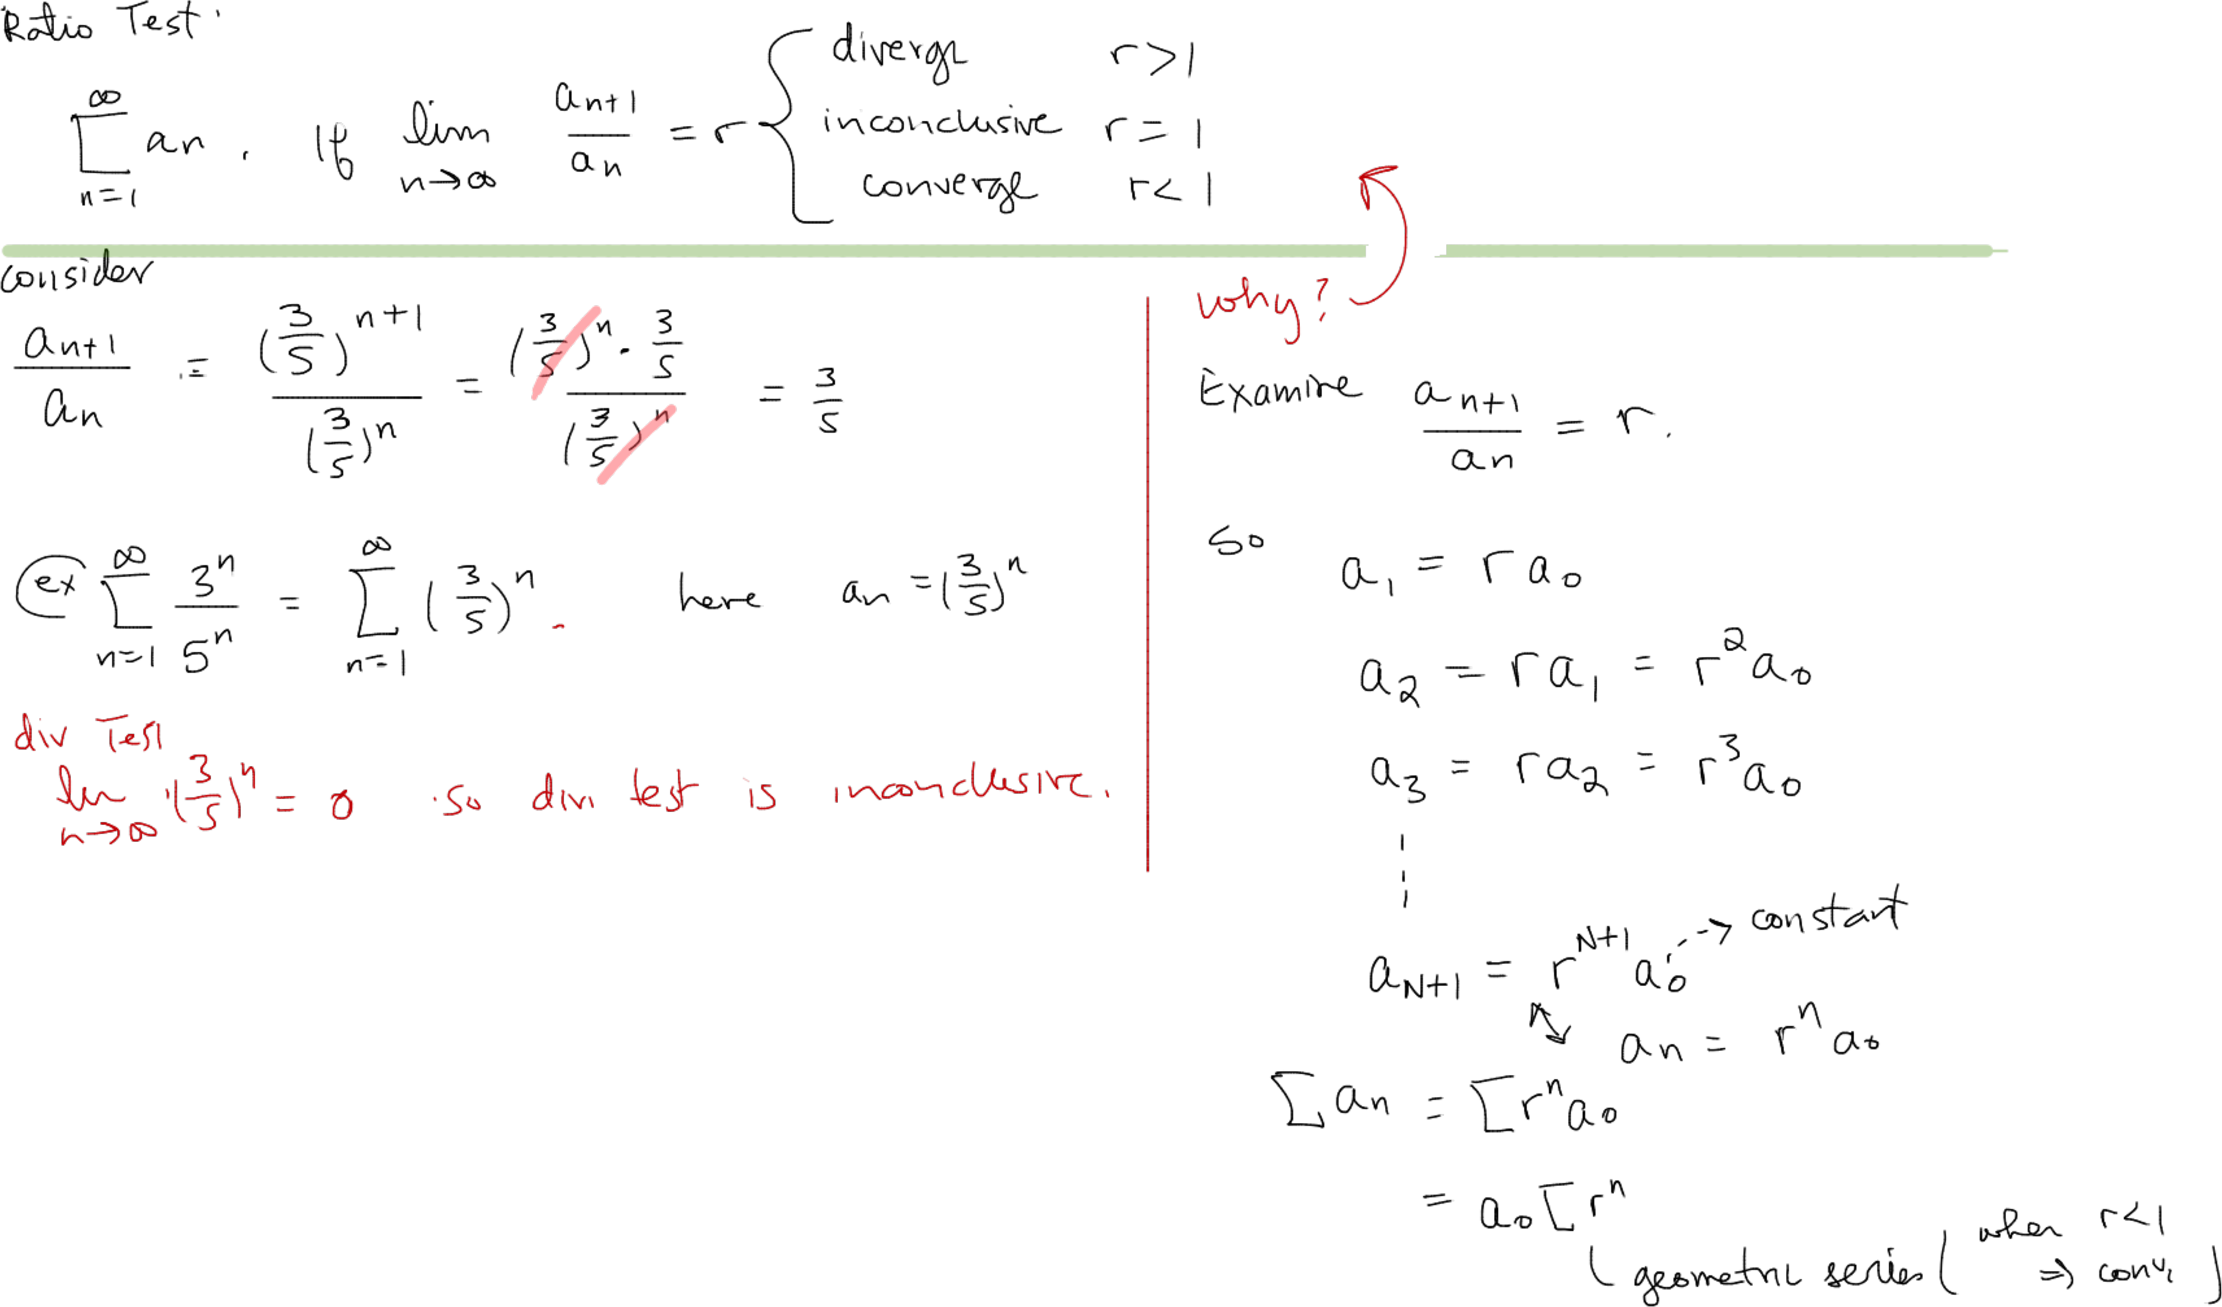 Ratio Test.
∑_{n=1}^{∞} a_n . If lim_{n→∞} a_{n+1}/a_n = r { diverge r>1
inconclusive r = 1
converge r< 1
consider
a_{n+1}/a_n = (3/5)^{n+1}/(3/5)^n = (3/5)^n · 3/5 / (3/5)^n = 3/5
ex ∑_{n=1}^{∞} 3^n/5^n = ∑_{n=1}^{∞} (3/5)^n . here a_n = (3/5)^n
div Test
lim_{n→∞} (3/5)^n = 0 so div. test is inconclusive.
why?
Examine a_{n+1}/a_n = r.
so a_1 = r a_0
a_2 = r a_1 = r^2 a_0
a_3 = r a_2 = r^3 a_0
a_{N+1} = r^{N+1} a_0 --> constant
a_n = r^n a_0
∑ a_n = ∑ r^n a_0
= a_0 ∑ r^n
geometric series ( when r<1
⇒ conv. )